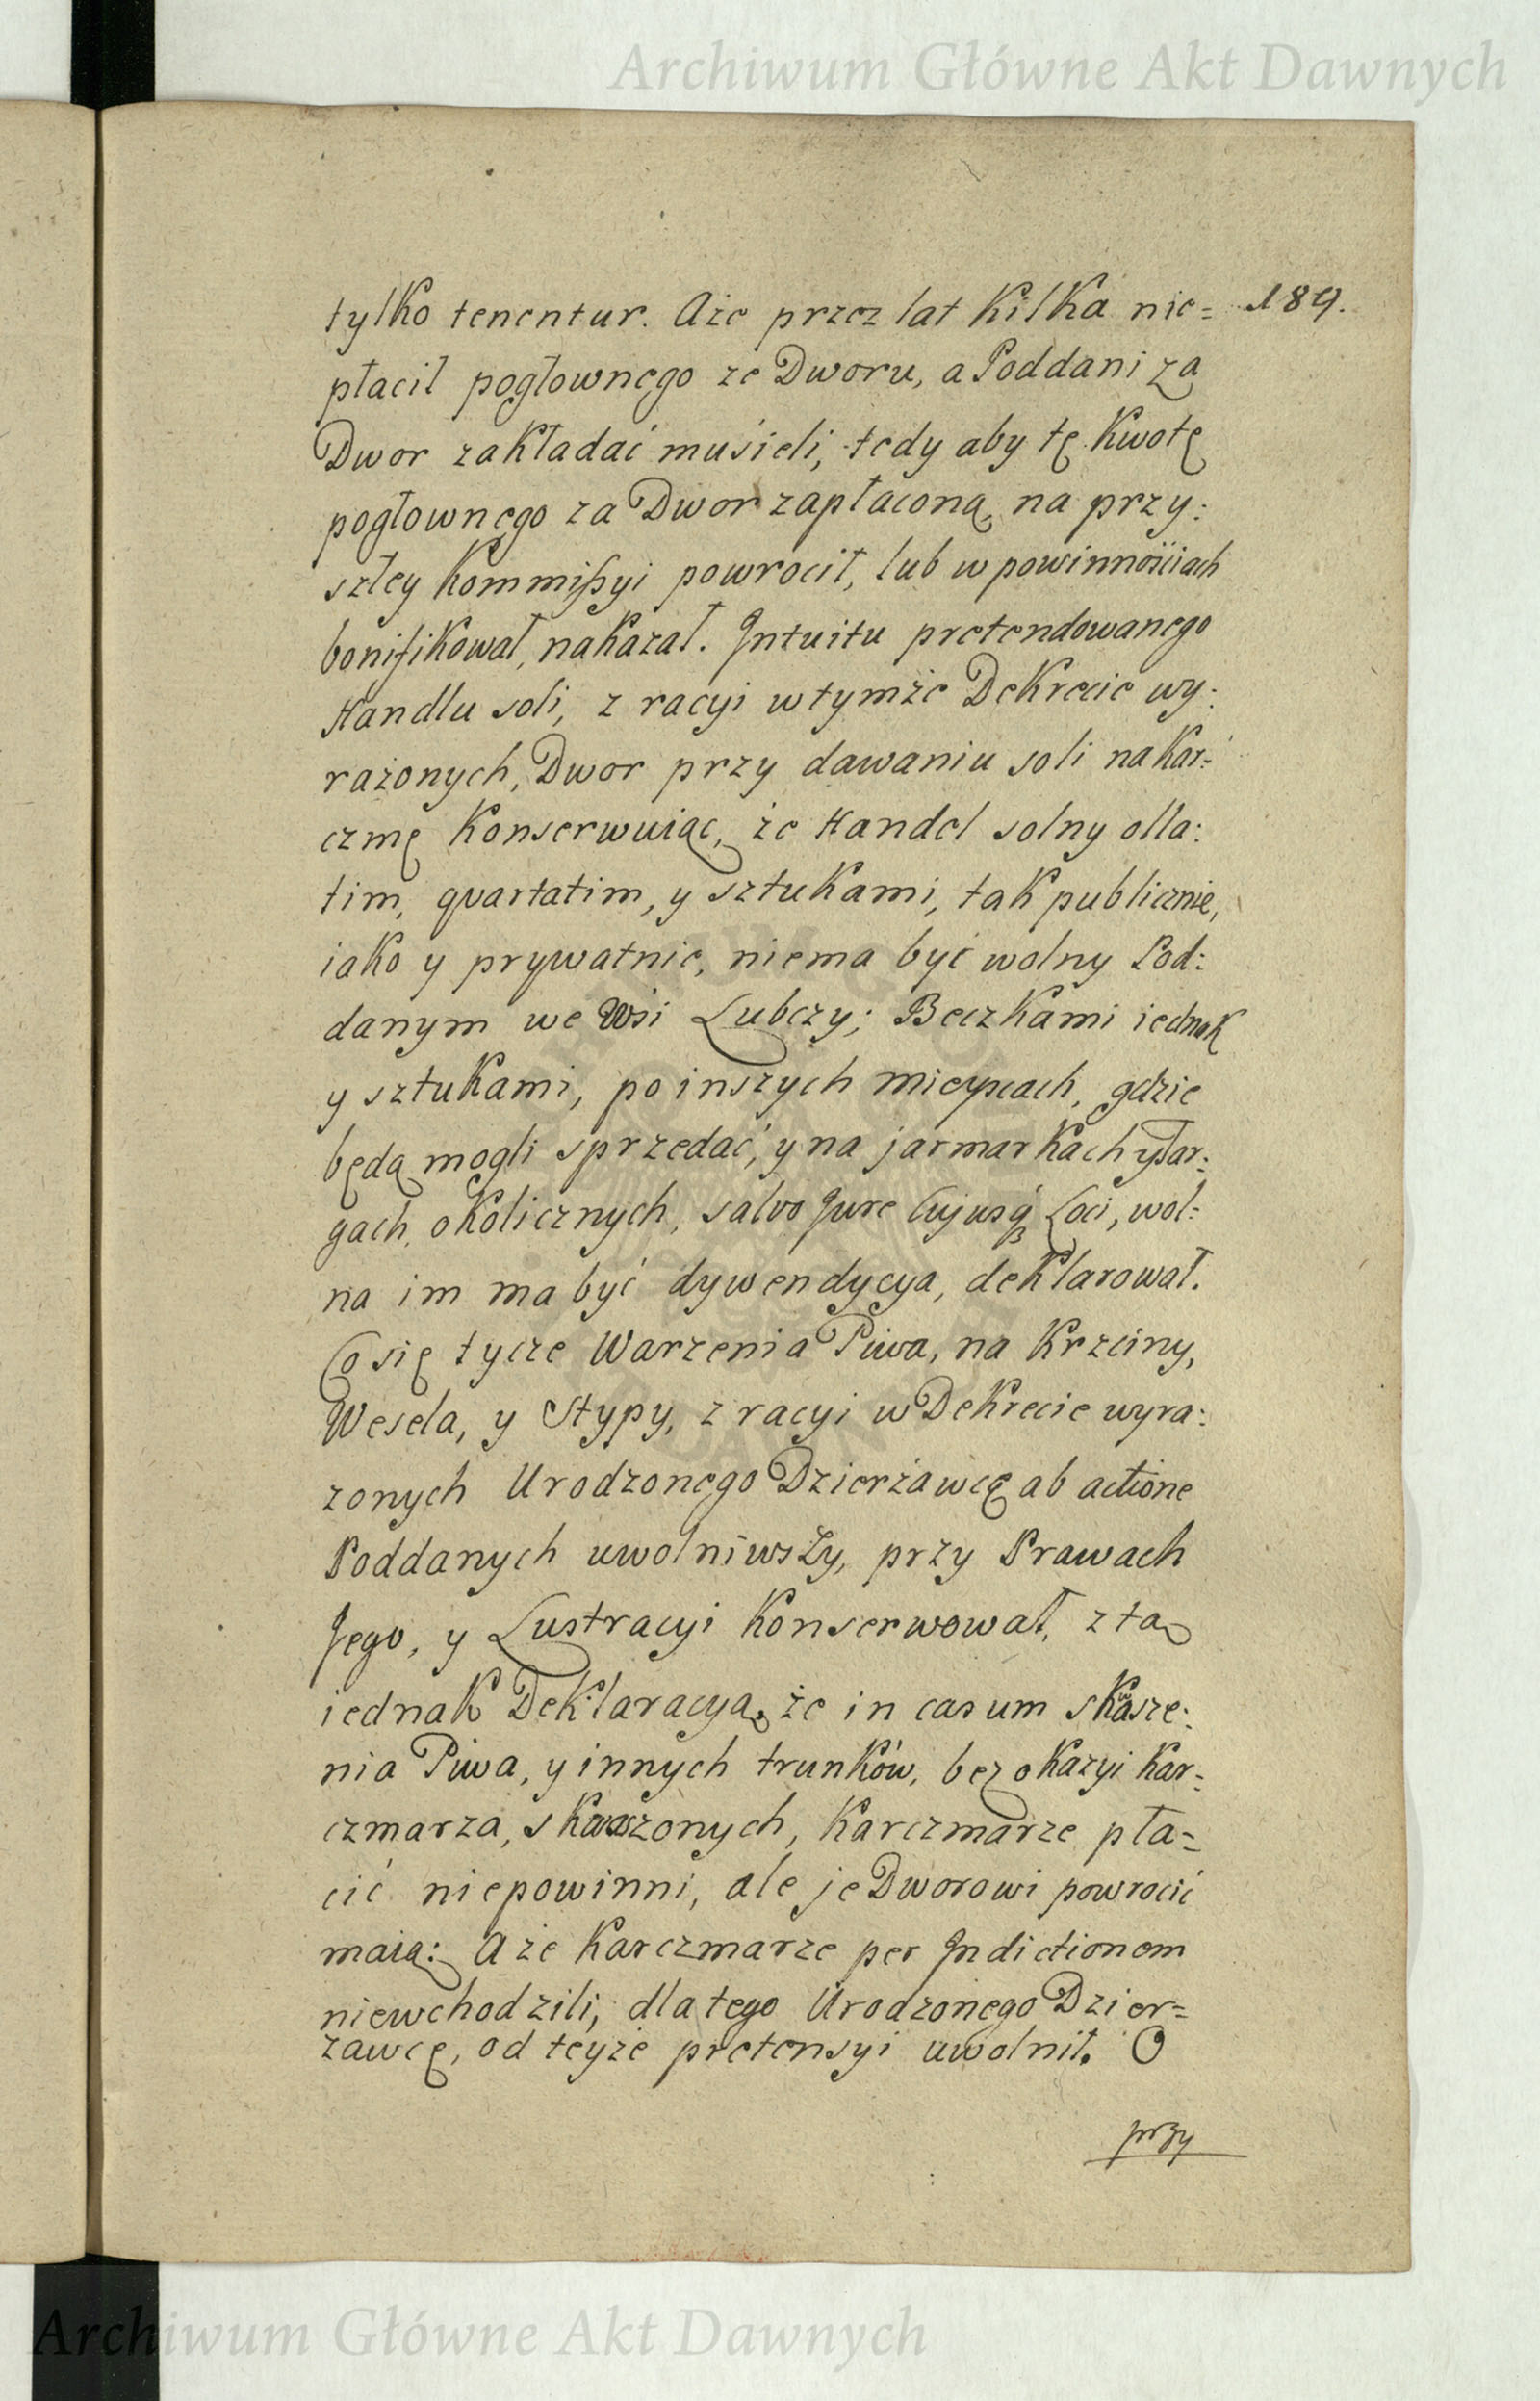 Archiwum Główne Akt Dawnych
189.
tylko tenentur. Aże przez lat kilka nie=
płacił pogłownego ze Dworu, a Poddani za
Dwor zakładać muśieli, tedy aby tę kwotę
pogłownęgo za Dwor zapłaconą, na przy:
szłey Kommißyi powrocił, lub w powinnościach
bonifikował, nakazał. Intuitu pretendowanego
Handlu soli, z racyi w tymże Dekrecie wy:
rażonych, Dwor przy dawaniu soli na kar:
czmę konserwuiąc, że Handel solny olla:
tim, qvartatim, y sztukami, tak publicznie,
iako y prywatnie, niema być wolny Pod:
danym we Wsi Lubczy; Beczkami iednak
y sztukami, po inszych mieyscach, gdzie
będą mogli sprzedać, y na jarmarkach y Tar:
gach okolicznych, salvo Jure Cujusq Loci, wol:
na im ma być dywendycya, deklarował.
Co się tycze Warzenia Piwa, na Krzciny,
Wesela, y Stypy, z racyi w Dekrecie wyra:
zonych Urodzonego Dzierżawcę ab actione
Poddanych uwolniwszy, przy Prawach
Jego, y Lustracyi konserwował, z tą
iednak Deklaracyą, że in casum skwasze:
nia Piwa, y innych trunków, bez okazyi kar=
czmarza, skwaszonych, Karczmarze pła=
cić niepowinni, ale je Dworowi powrocić
maią: A że Karczmarze per Indictionem
niewchodzili, dlatego Urodzonego Dzier=
zawcę, od teyże pretensyi uwolnił. O
przy
Archiwum Główne Akt Dawnych